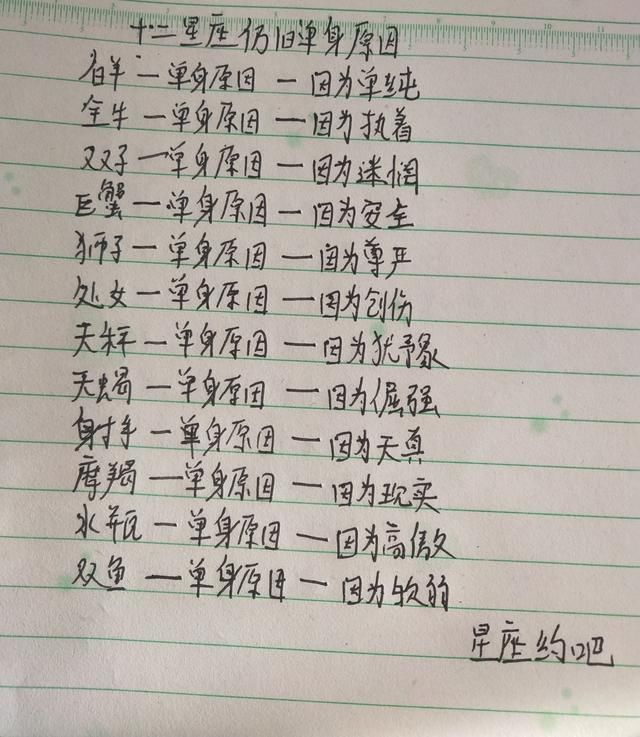 十二星座仍旧单身原因
白羊一单身原因一因为单纯
金牛一单身原因一因为执着
双子一单身原因一因为迷惘
巨蟹一单身原因一因为安全
狮子一单身原因一因为尊严
处女一单身原因一因为创伤
天秤一单身原因一因为犹豫
天蝎一单身原因一因为倔强
射手一单身原因一因为天真
摩羯一单身原因一因为现实
水瓶一单身原因一因为高傲
双鱼一单身原因一因为软弱
星座约吧